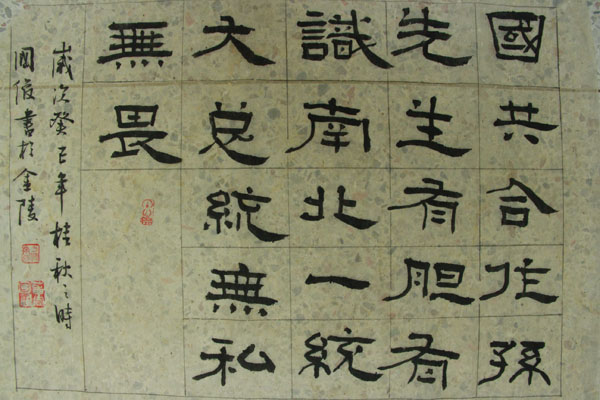 國共合作孫
先生有胆有
識南北一統
大总統無私
無畏
歲次癸巳年桂秋之時
國俊書於金陵